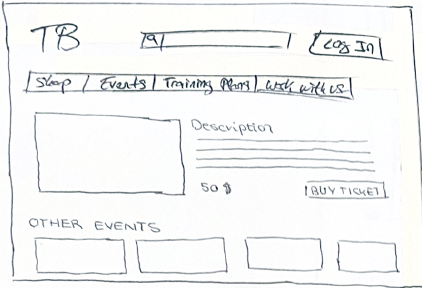 TB
Log In
Shop / Events | Training Plans | Work with us
Description
50 $
BUY TICKET
OTHER EVENTS